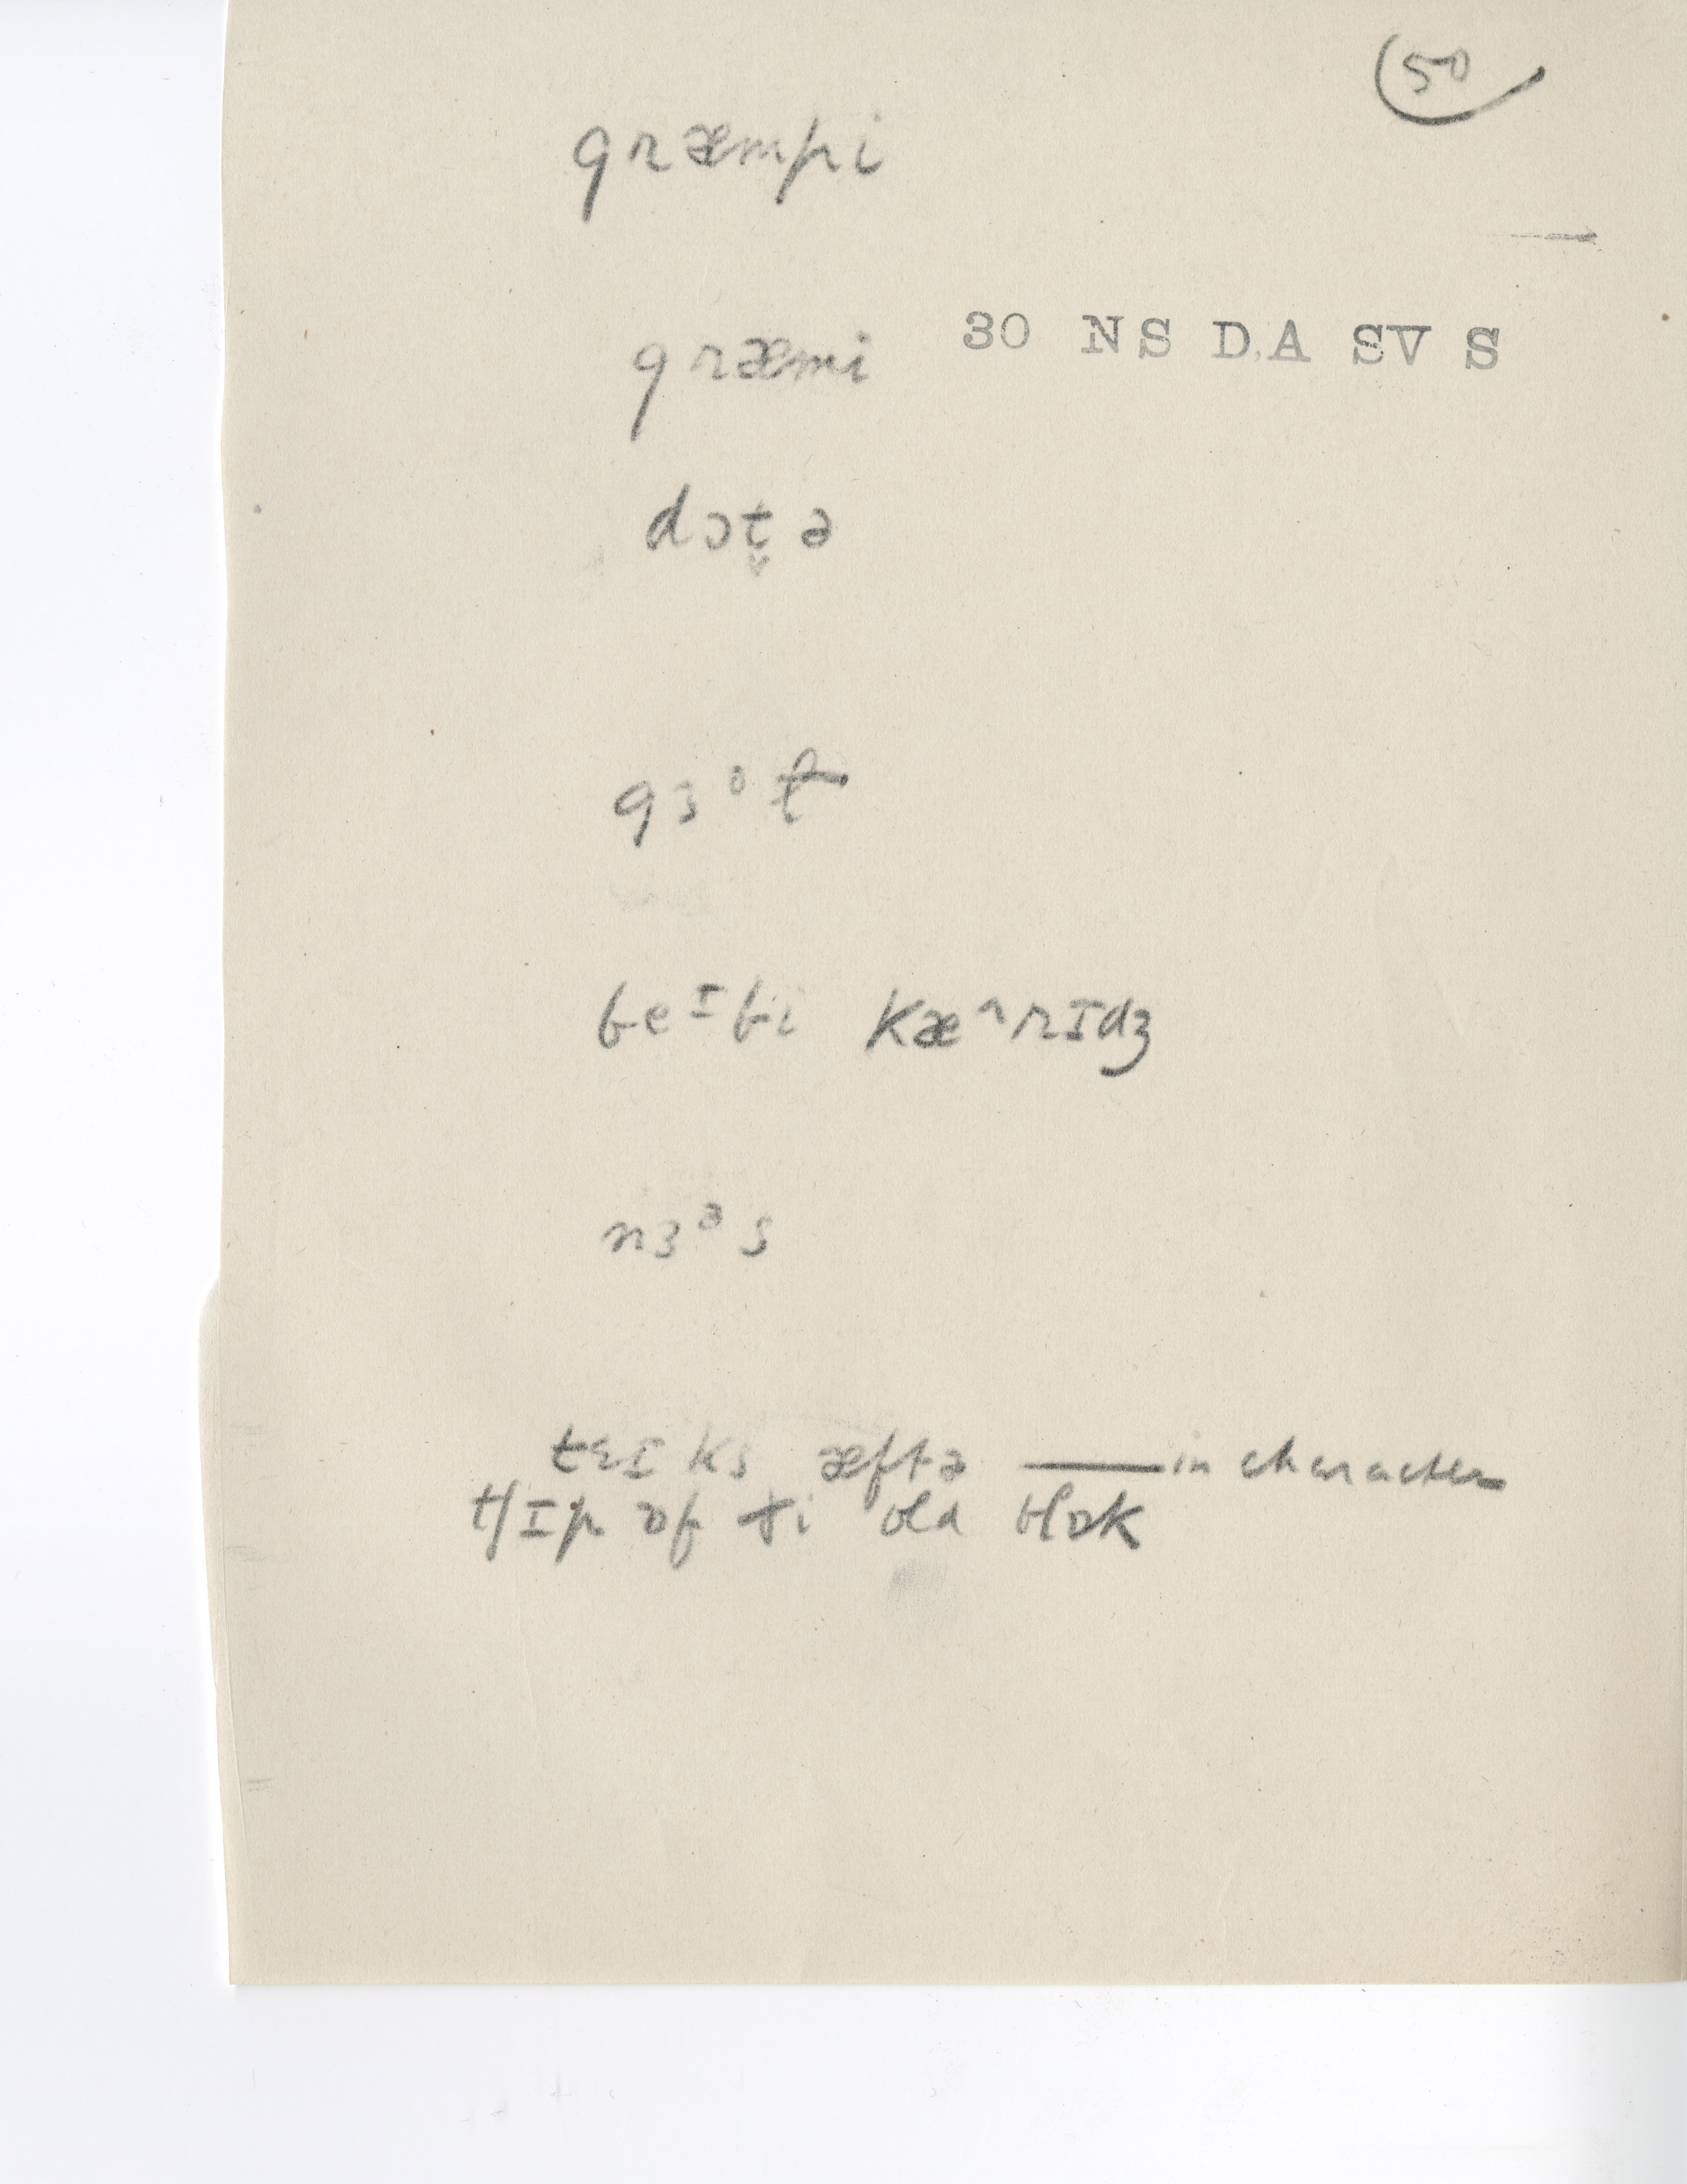 50
græmpi
græmi 30 NS D.A SV S
dɔt̬ə
gɜᶷt
beᴵbi kæ^rɪdʒ
nɜᵊs
tɛɪks æftə —— in character
tʃɪp ɒf ði old blɒk